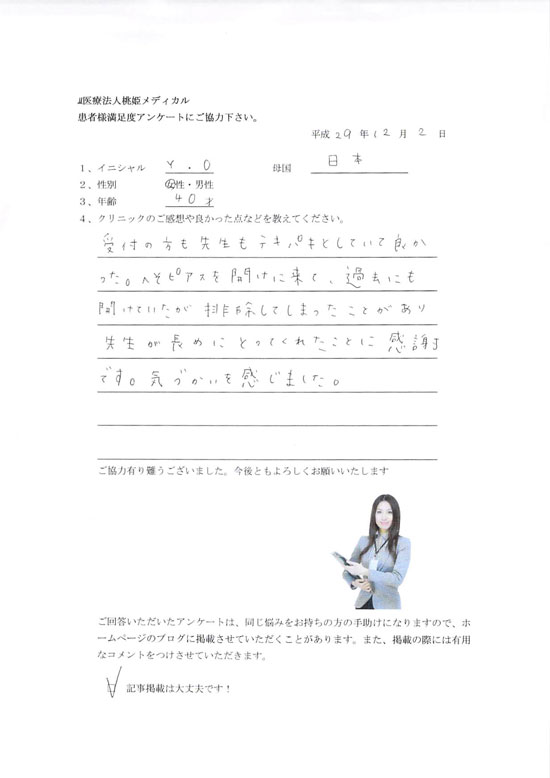 医療法人桃姫メディカル
患者様満足度アンケートにご協力下さい。
平成 29 年 12 月 2 日
1、イニシャル Y.O 母国 日本
2、性別 女性・男性
3、年齢 40才
4、クリニックのご感想や良かった点などを教えてください。
受付の方も先生もテキパキとしていて良か
った。へそピアスを開けに来て、過去にも
開けていたが排除してしまったことがあり
先生が長めにとってくれたことに感謝
です。気づかいを感じました。
ご協力有り難うございました。今後ともよろしくお願いいたします
ご回答いただいたアンケートは、同じ悩みをお持ちの方の手助けになりますので、ホ
ームページのブログに掲載させていただくことがあります。また、掲載の際には有用
なコメントをつけさせていただきます。
記事掲載は大丈夫です！